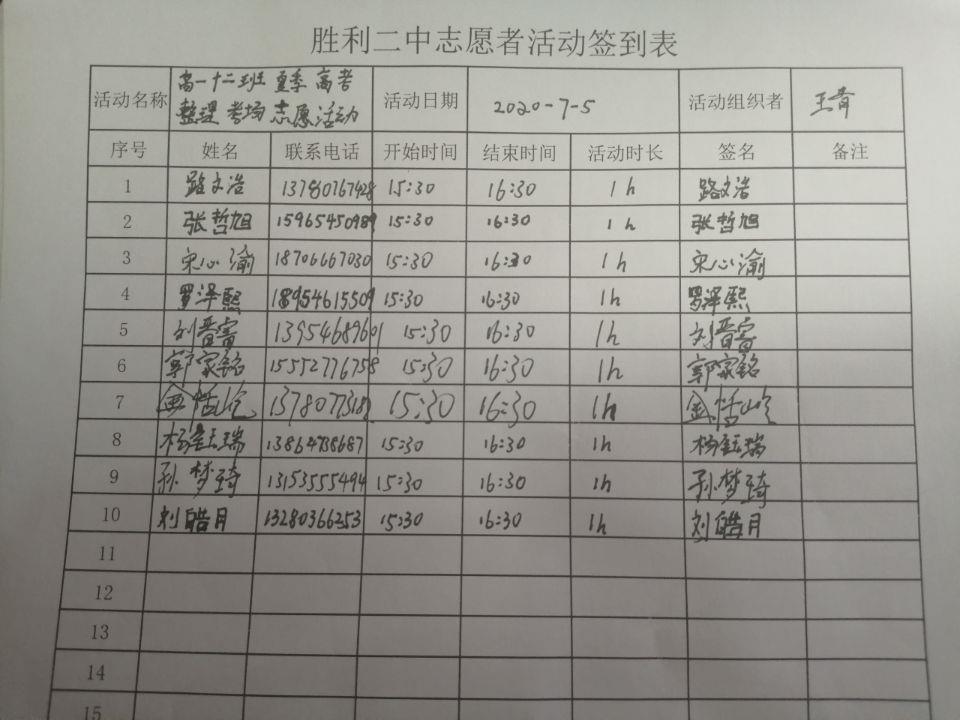 胜利二中志愿者活动签到表
活动名称 高一十二班 夏季 高考 整理 考场 志愿活动 活动日期 2020-7-5 活动组织者 王青
序号 姓名 联系电话 开始时间 结束时间 活动时长 签名 备注
1 路文浩 13780767428 15:30 16:30 1h 路文浩
2 张哲旭 15965450989 15:30 16:30 1h 张哲旭
3 宋心渝 18706667030 15:30 16:30 1h 宋心渝
4 罗泽熙 18954615509 15:30 16:30 1h 罗泽熙
5 刘晋睿 13954689601 15:30 16:30 1h 刘晋睿
6 郭家铭 15552776758 15:30 16:30 1h 郭家铭
7 15:30 16:30 1h
8 杨钰瑞 13864738687 15:30 16:30 1h 杨钰瑞
9 孙梦琦 13153555494 15:30 16:30 1h 孙梦琦
10 刘皓月 13280366353 15:30 16:30 1h 刘皓月
11
12
13
14
15